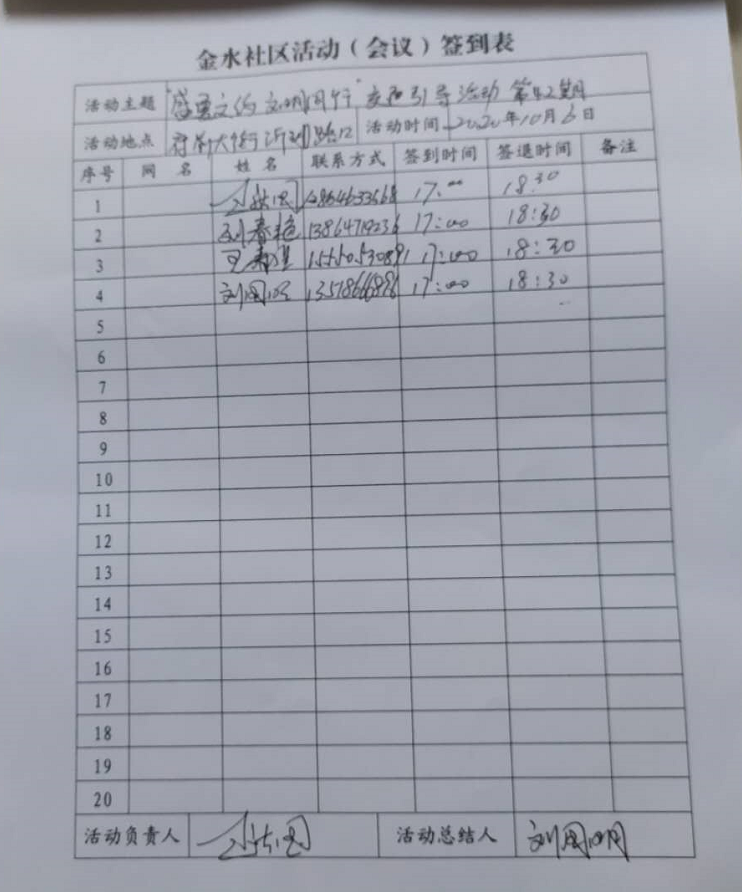 金水社区活动(会议)签到表
活动主题 文明同行"交通引导活动 第42期
活动地点 府前大街 路口 活动时间 2020年10月6日
序号 网 名 姓 名 联系方式 签到时间 签退时间 备注
1 17:00 18:30
2 刘春艳 13864719236 17:00 18:30
3 王 17:00 18:30
4 刘国明 17:00 18:30
5
6
7
8
9
10
11
12
13
14
15
16
17
18
19
20
活动负责人 活动总结人 刘国明